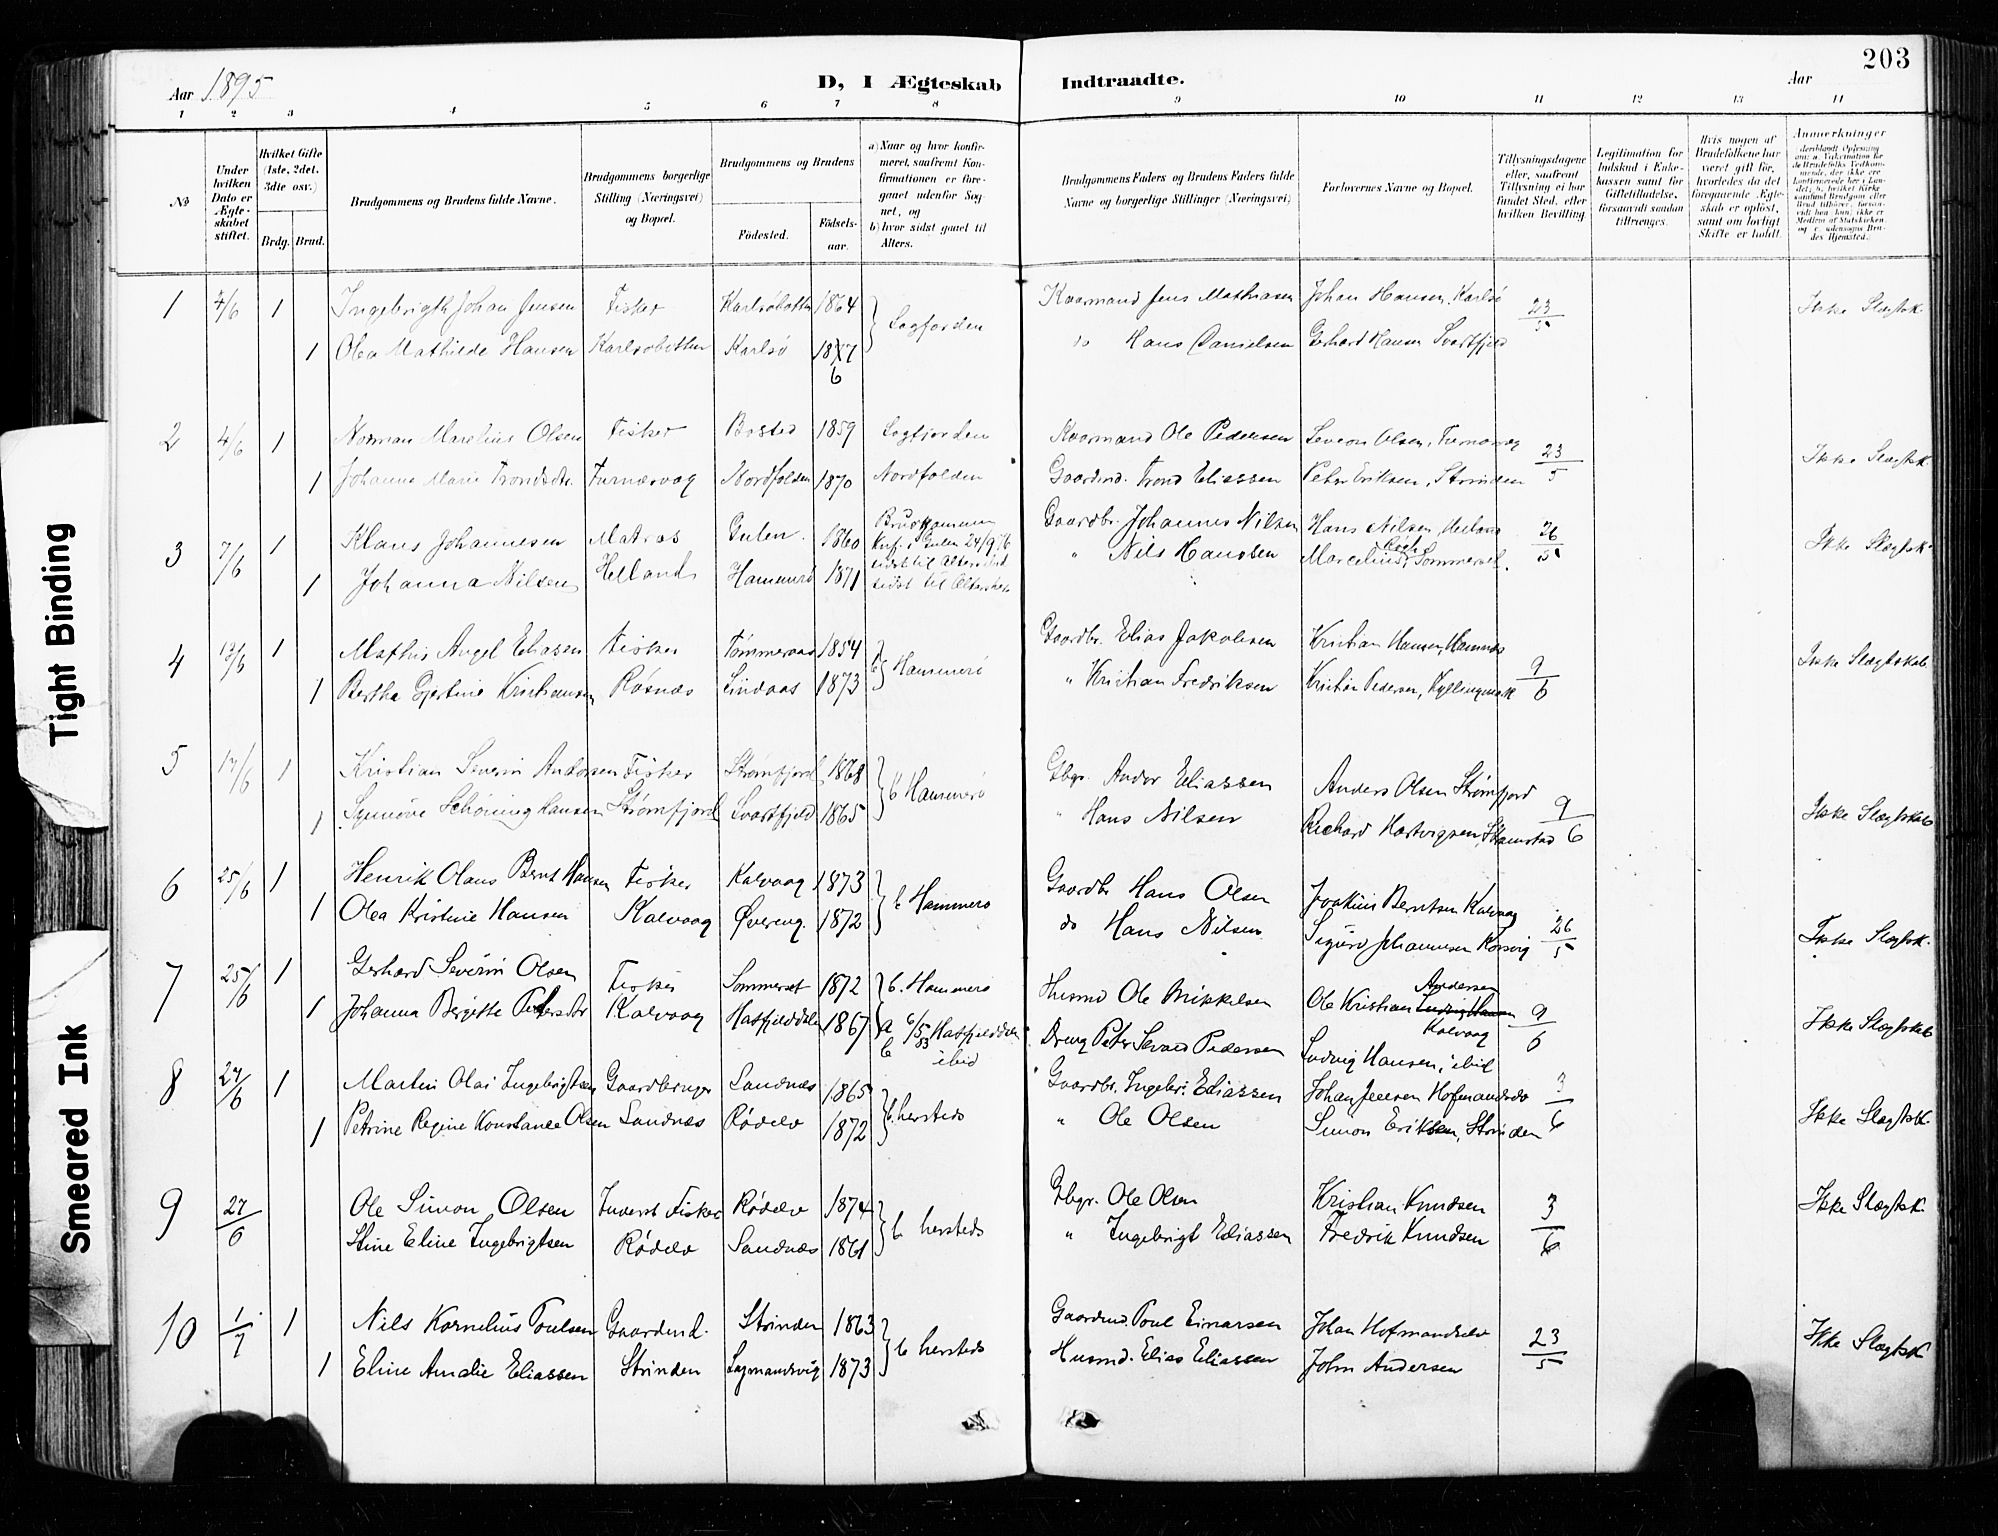 203
Aar 1895
D, I Ægteskab Indtraadte.
Aar
1 2 3 4 5 6 7 8 9 10 11 12 13 14
No
Under hvilken Dato er Ægteskabet stiftet.
Hvilket Gifte (1ste, 2det, 3dte osv.)
Brdg. Brud.
Brudgommens og Brudens fulde Navne.
Brudgommens borgerlige Stilling (Næringsvei) og Bopæl.
Brudgommens og Brudens
Födested.
Födselsaar.
a) Naar og hvor konfirmeret, saafremt Konfirmationen er foregaaet udenfor Sognet, og
b) hvor sidst gaaet til Alters.
Brudgommens Faders og Brudens Faders fulde Navne og borgerlige Stillinger (Næringsvei)
Forlovernes Navne og Bopæl.
Tillysningsdagene eller, saafremt Tillysning ei har fundet Sted, efter hvilken Bevilling.
Legitimation for Indskud i Enkekassen samt for Giftetilladelse, forsaavidt saadan tiltrænges.
Hvis nogen af Brudefolkene har været gift för, hvorledes da det foregaaende Ægteskab er oplöst, samt om lovligt Skifte er holdt.
Anmerkninger
1 4/6 1 Ingebrigth Johan Jensen Fisker Karlsöbotten 1864 Sagfjorden Kaarmand Jens Mathiasen Johan Hansen, Karlsö 23/5 Ikke Slægtsk.
1 Olea Mathilde Hansen Karlsobotten Karlsö 1867 do Hans Danielsen Gerhard Hansen Svartfjeld
2 4/6 1 Norman Marelius Olsen Fisker Bosted 1859 Sagfjorden Kaarmand Ole Pedersen Severin Olsen, 23/5 Ikke Slægtsk.
1 Johanna Marie Trondsdtr. Furnærvag Nordfolden 1870 Nordfolden Gaardmd. Trond Eliassen Peter Eriksen, Strinden
3 7/6 1 Klaus Johannesen Matros Gulen 1860 Brudgommen Gaardbr. Johannes Nilsen Hans Nilsen, 26/5 Ikke Slægtsk.
Knf. i Gulen 24/9 76
1 Johanna Nilsen Helland Hammerö 1871 sidst til Alters " Nils Hanssen Marcelius Sommersel.
4 13/6 1 Mathis Angel Eliasen Fisker Tømmeraas 1854 b Hammerö Gaardbr. Elias Jakobsen Kristian Hansen, 9/6 Ikke Slægtskab
1 Bertha Gjertine Kristiansen Røsnæs Lindaas 1873 " Kristian Fredriksen Kristian Pedersen, Kyllingmark
5 17/6 1 Kristian Severin Andorsen Fisker Strømfjord 1868 b Hammerö Gbgr. Andor Eliassen Anders Olsen Strømfjord 9/6 Ikke Slægtskab
1 Synnöve Schöning Hansen Strømfjord Svartfjeld 1865 " Hans Nilsen Richard Hartvigsen,
6 25/6 1 Henrik Olaus Bernt Hansen Fisker Kalvaag 1873 b Hammerö Gaardbr Hans Olsen Joakim Berntsen Kalvaag 26/5 Ikke Slægtsk.
1 Olea Kristine Hansen Kalvaag Øvereng. 1872 do Hans Nilsen Sigurd Johannesen Korsvig
7 25/6 1 Gerhard Severin Olsen Fisker Sommerset 1872 b. Hammerö Husmd Ole Mikkelsen Ole Kristian Andersen Kalvaag 9/6 Ikke Slægtskab
1 Johanna Bergitte Pedersdtr Kalvaag Hatfjelddalen 1867 a 6/5 83 Hatfjelddalen b ibid Dreng Peter Pedersen Ludvig Hansen, ibid
8 27/6 1 Martin Olai Ingebrigtsen Gaardbruger Sandnæs 1865 b. hersteds Gaardbr. Ingebr. Eliassen Johan Jensen Hofmandselv 3/6 Ikke Slægtsk.
1 Petrine Regine Konstance Olsen Sandnæs Rödelv 1872 " Ole Olsen Simon Eriksen, Strinden
9 27/6 Ole Simon Olsen Inderst Fisker Rødelv 1874 b hersteds Gbgr. Ole Olsen Kristian Knudsen 3/6 Ikke Slægtsk.
Stine Eline Ingebrigtsen Rødelv Sandnæs 1861 " Ingebrigt Eliassen Fredrik Knudsen
10 1/7 1 Nils Kornelius Poulsen Gaardmd. Strinden 1863 b hersteds Gaardmd. Poul Einarsen Johan Hofmandselv 23/5 Ikke Slægtsk
1 Eline Amalie Eliassen Strinden Lagmandsvig 1873 Husmd. Elias Eliassen John Andersen
Tight Binding
Smeared Ink